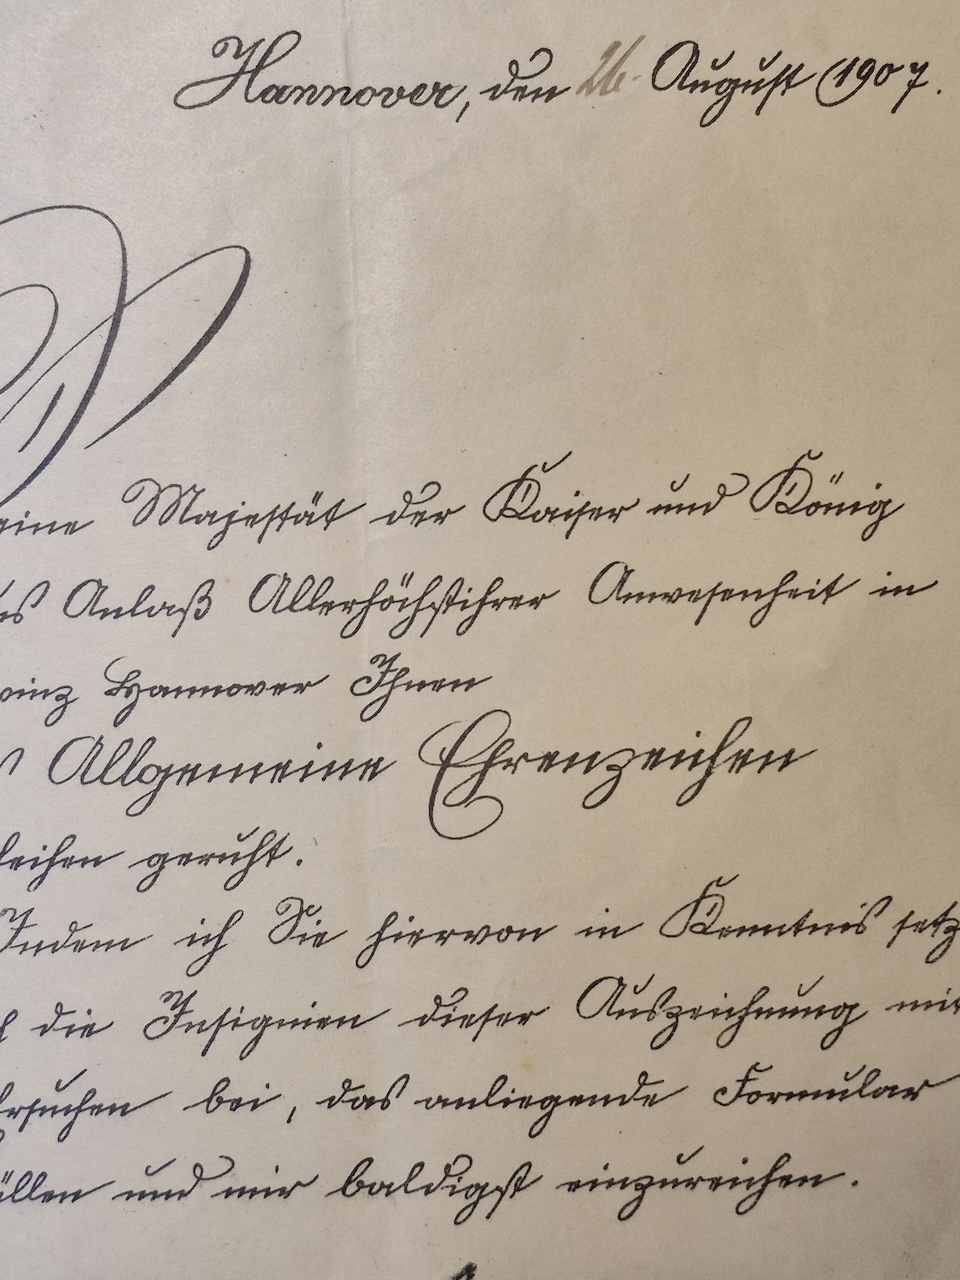 Hannover, den 26. August 1907.
eine Majestät der Kaiser und König
us Anlaß Allerhöchstihrer Anwesenheit in
vinz Hannover Ihnen
s Allgemeine Ehrenzeichen
leihen geruht.
Indem ich Sie hiervon in Kenntnis setz
die Insignien dieser Auszeichnung mit
rsuchen bei, das anliegende Formular
üllen und mir baldigst einzureichen.